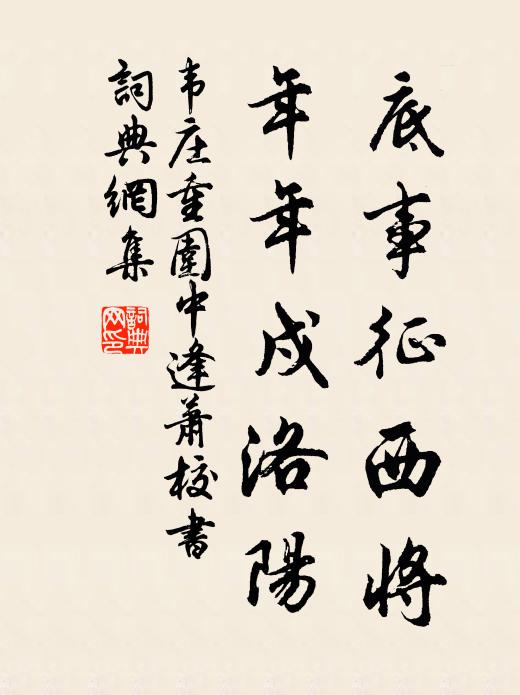 底事征西將
年年戍洛陽
韦庄重圍中逢蕭校書
詞典網集
詞典网印